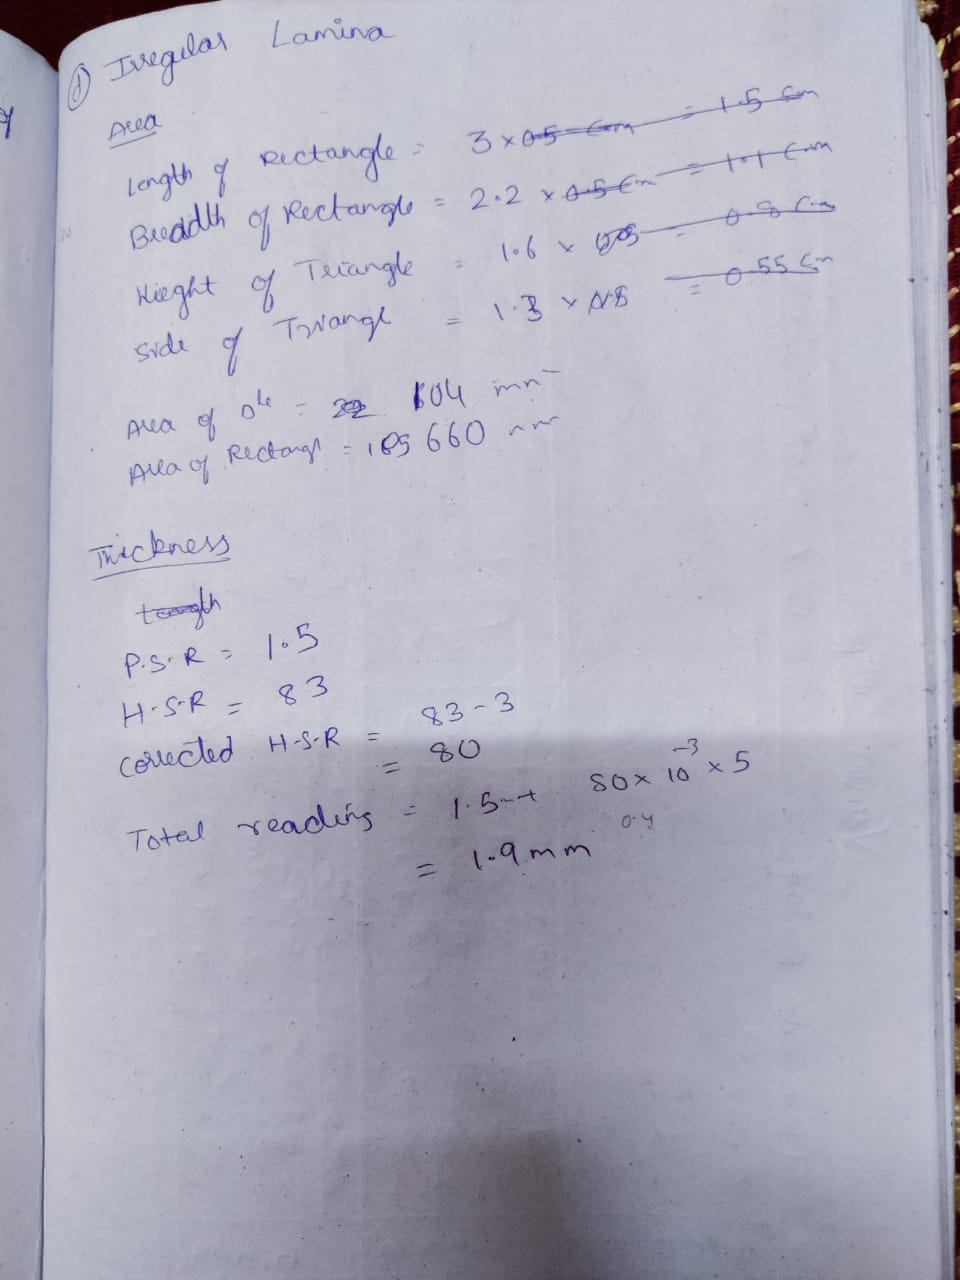 d) Irregular Lamina
Area
Length of Rectangle = 3 × 0.5 cm = 1.5 cm
Breadth of Rectangle = 2.2 × 0.5 cm = 1.1 cm
Hieght of Triangle = 1.6 × = 0.8 cm
Side of Triangl = 1.3 × 0.5 = 0.55 cm
Area of Dle = 104 mm²
Area of Rectangl = 660 mm²
Thickness
P.S.R = 1.5
H.S.R = 83
Corrected H-S-R = 83-3
= 80
Total reading = 1.5 + 80 × 10⁻³ × 5
0.4
= 1.9 mm